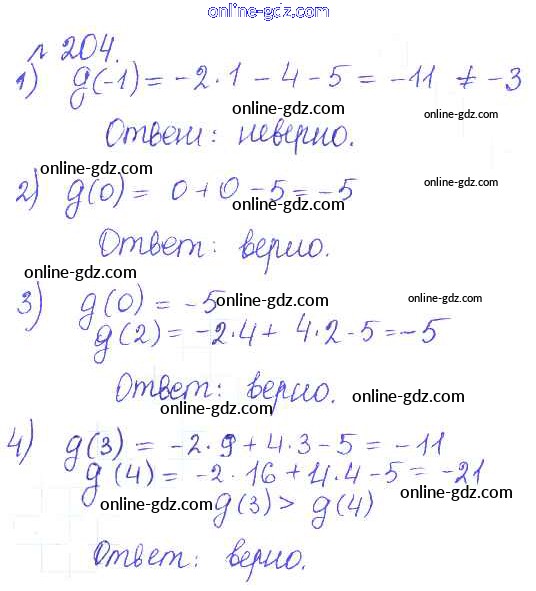 online-gdz.com
№ 204.
1) g(-1) = -2·1 - 4 - 5 = -11 ≠ -3
online-gdz.com online-gdz.com
Ответ: неверно.
online-gdz.com
2) g(0) = 0 + 0 - 5 = -5
online-gdz.com online-gdz.com
Ответ: верно.
online-gdz.com
3) g(0) = -5
online-gdz.com online-gdz.com
g(2) = -2·4 + 4·2 - 5 = -5
Ответ: верно.
online-gdz.com online-gdz.com
4) g(3) = -2·9 + 4·3 - 5 = -11
g(4) = -2·16 + 4·4 - 5 = -21
online-gdz.com online-gdz.com
g(3) > g(4)
Ответ: верно.